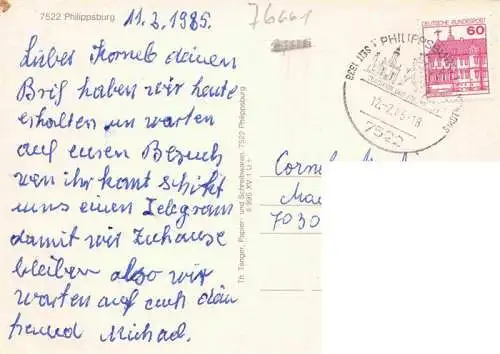 7522 Philippsburg
11.2.1985.
76661
Lieber Kornel deinen
Brif haben wir heute
erhalten un warten
auf euren Besuch
wen ihr komt schikt
uns einen Telegram
damit wir Zuhause
bleiben also wir
warten auf euch dein
freund Michael.
Th. Tanger, Papier- und Schreibwaren, 7522 Philippsburg
PHILIPPSBURG
SEIT 1338
7522
DEUTSCHE BUNDESPOST
60
Cornel
7030